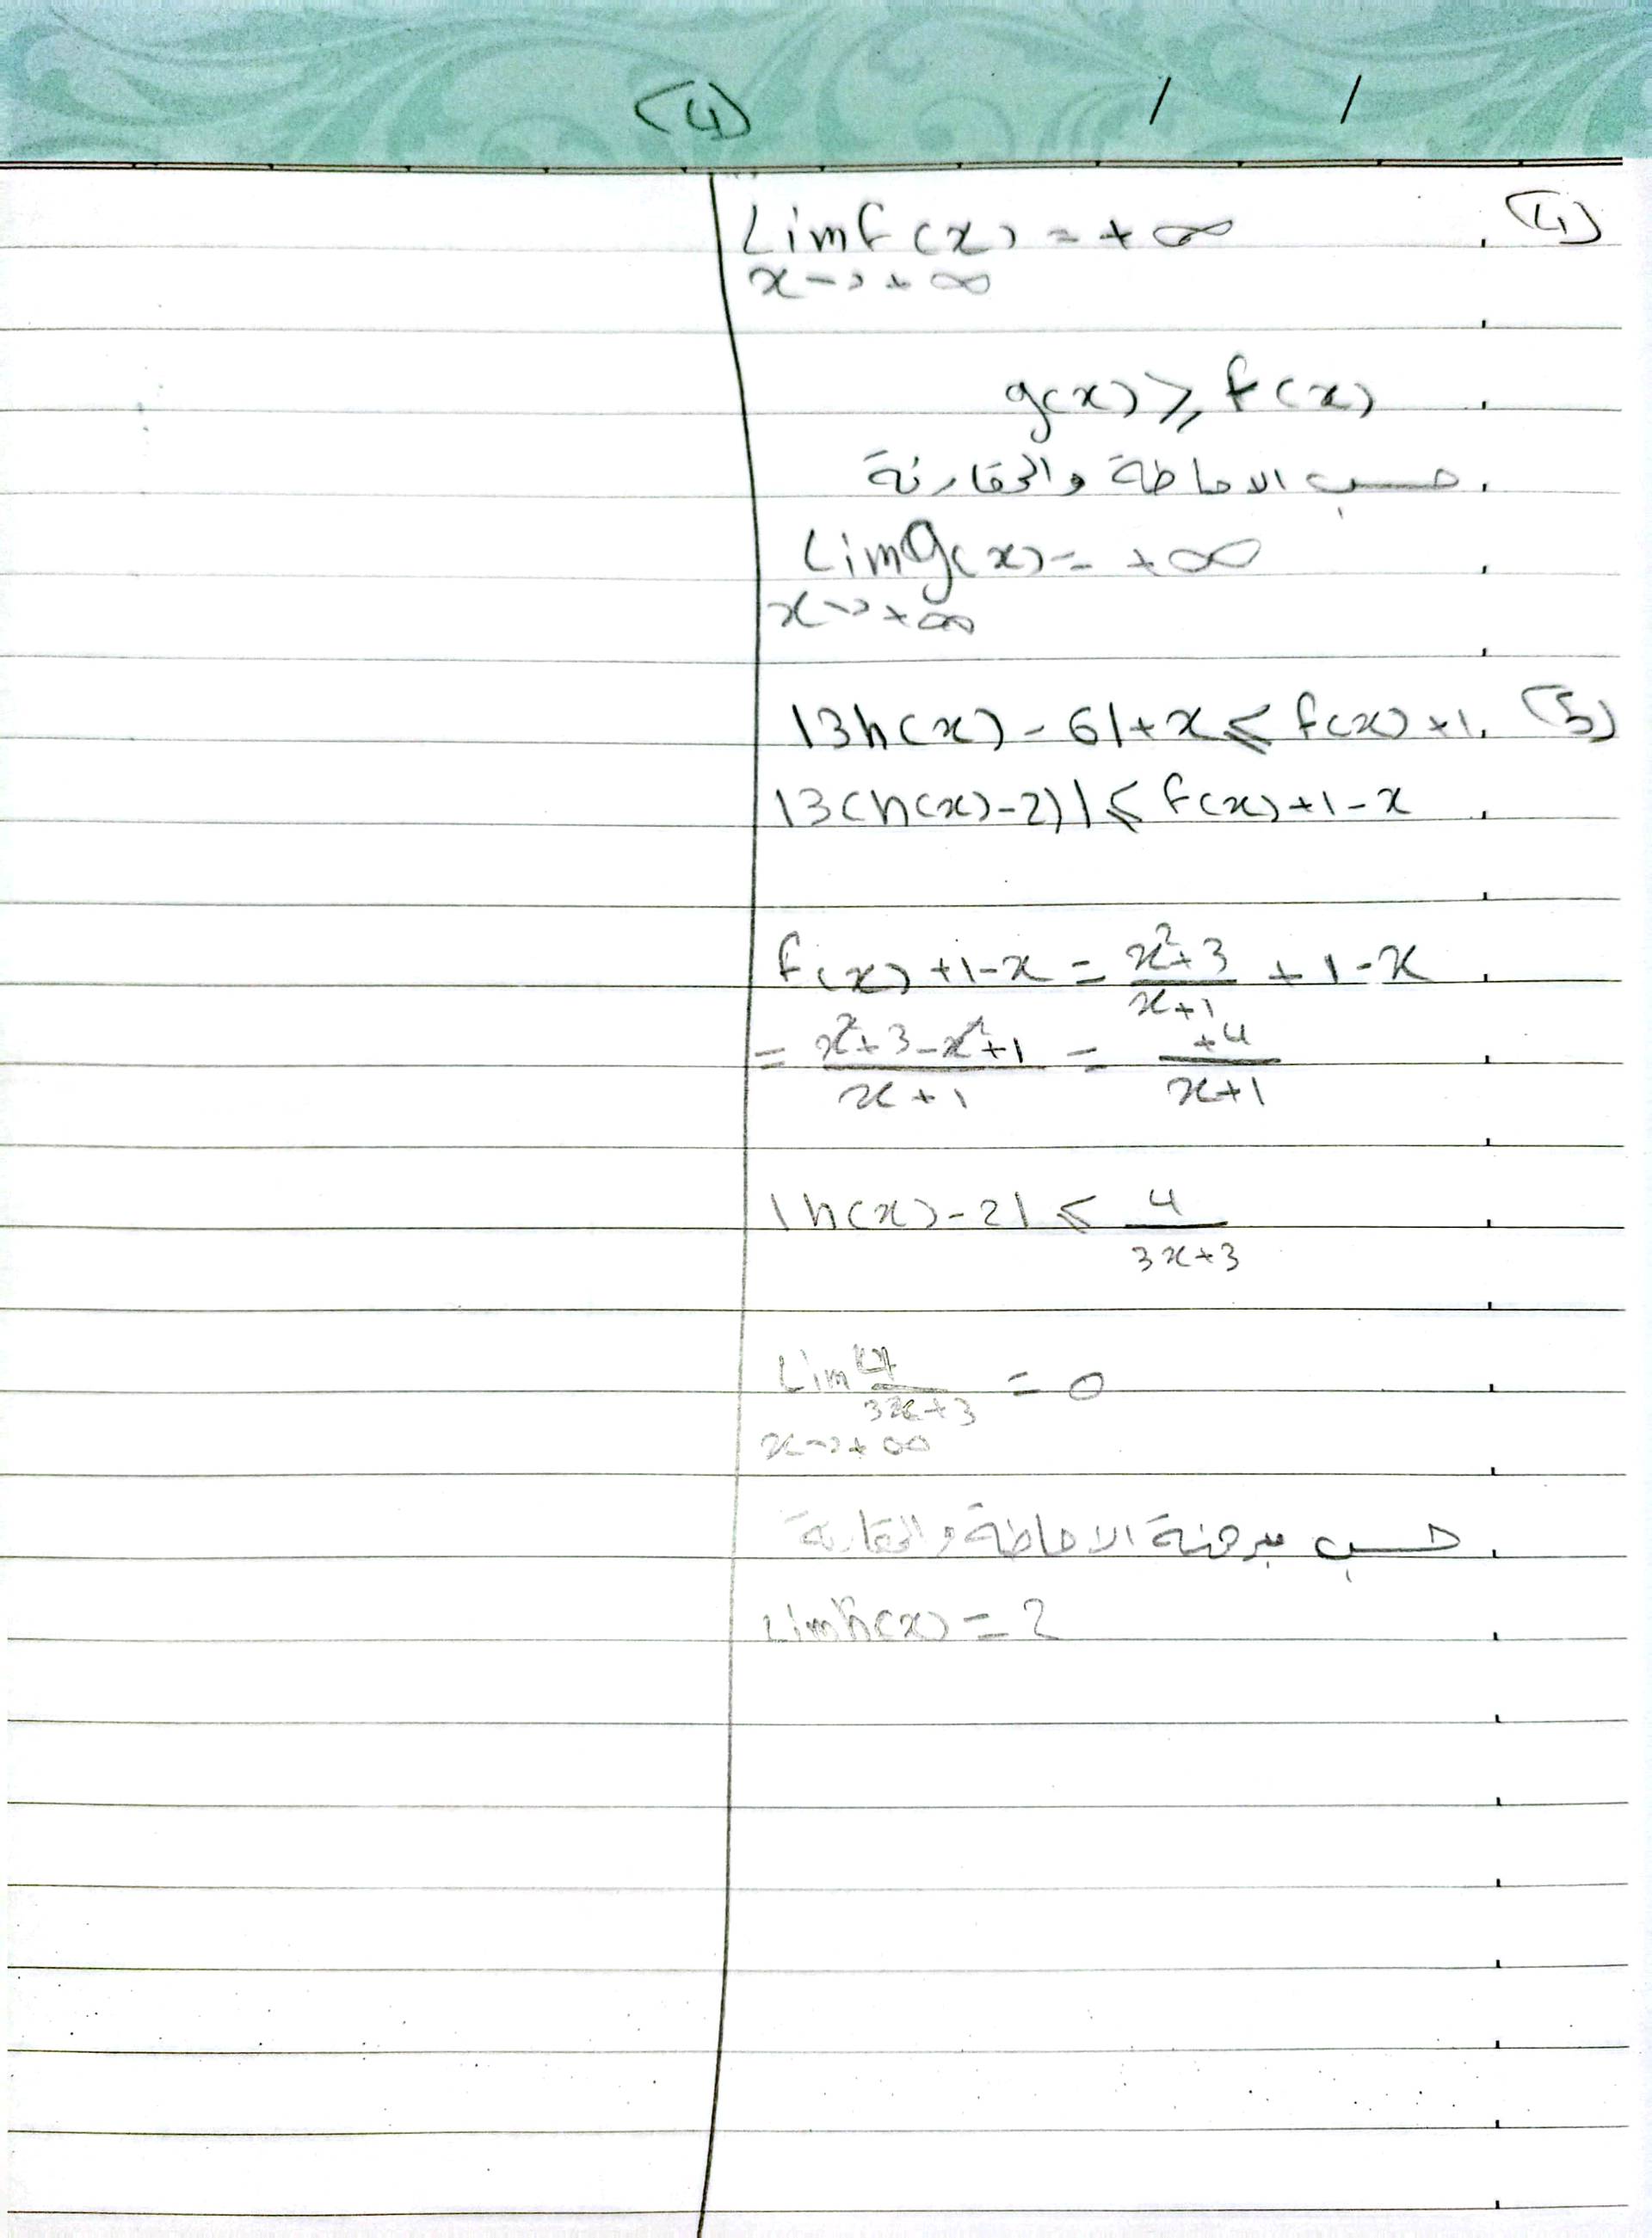 (4) / /
(4) Lim f(x) = +∞
x→+∞
g(x) ⩾ f(x)
حسب الاحاطة والمقارنة
Lim g(x) = +∞
x→+∞
(5) |3h(x) - 6| + x ⩽ f(x) + 1
|3(h(x) - 2)| ⩽ f(x) + 1 - x
f(x) + 1 - x = \frac{x²+3}{x+1} + 1 - x
= \frac{x²+3-x²+1}{x+1} = \frac{+4}{x+1}
|h(x) - 2| ⩽ \frac{4}{3x+3}
Lim \frac{4}{3x+3} = 0
x→+∞
حسب مبرهنة الاحاطة والمقارنة
Lim h(x) = 2